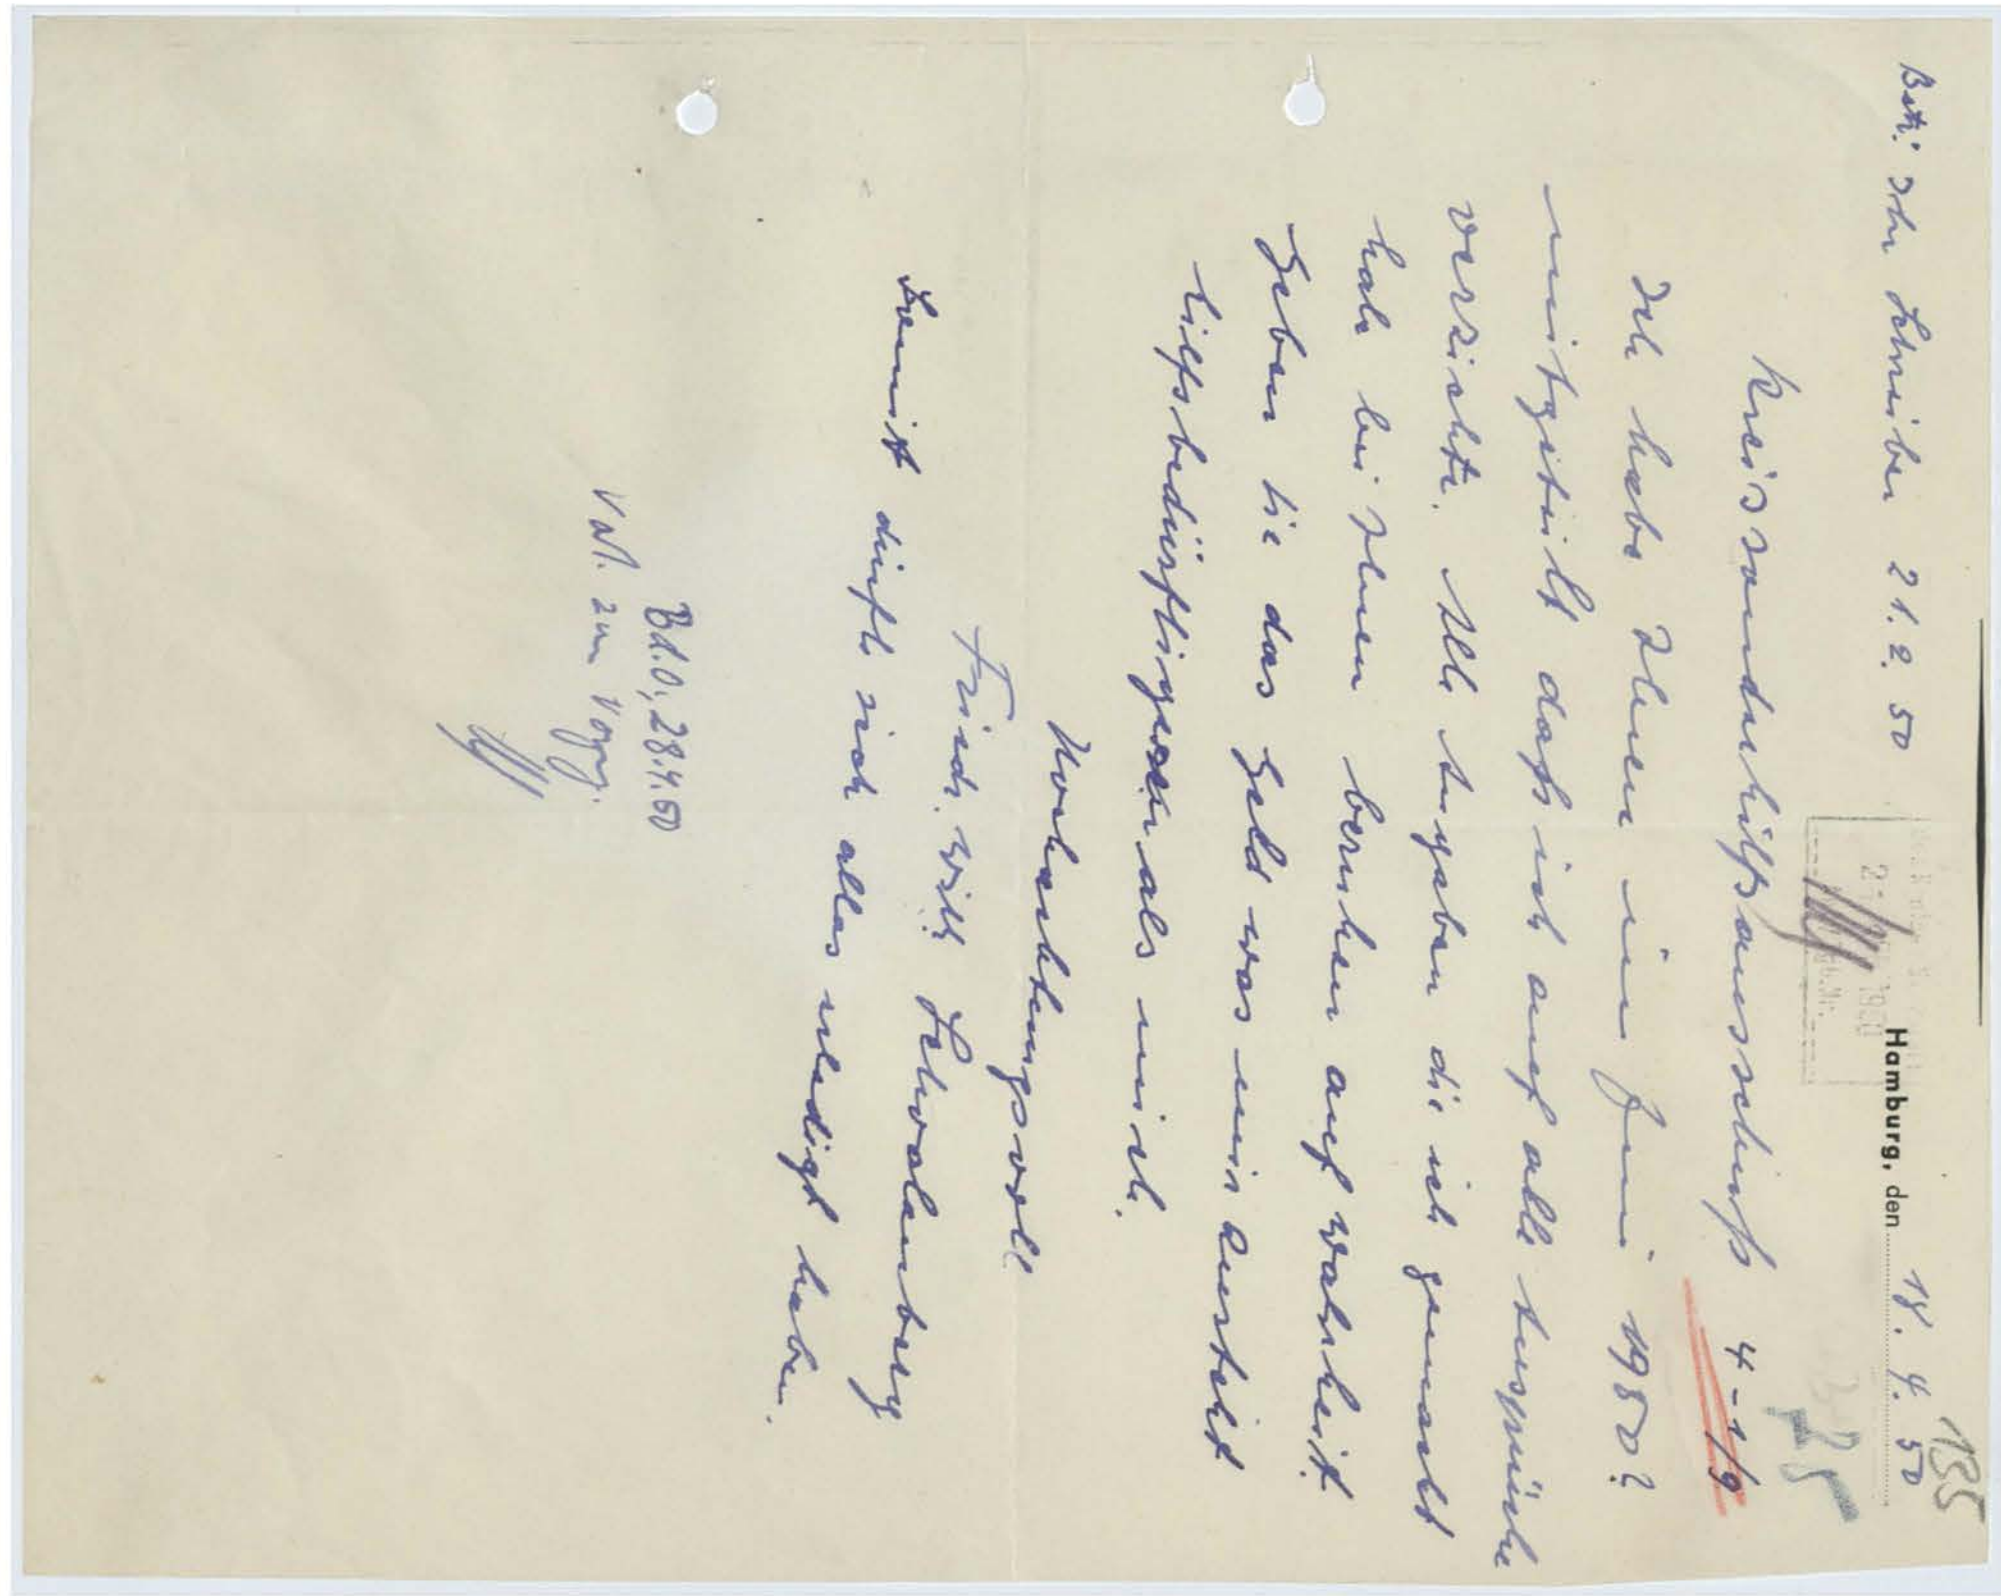 135
Hamburg, den 18. 4. 50
Betr: Ihr Schreiben 21. 2. 50
Kreissonderhilfsausschuß 4-1/9
Ich habe Ihnen im Juni 1950?
mitgeteilt daß ich auf alle Ansprüche
verzichte. Alle Angaben die ich gemacht
habe bei Ihnen beruhen auf Wahrheit.
Geben Sie das Geld was mir zusteht
hilfsbedürftigeren als mich.
Hochachtungsvoll
Friedr. Wilh. Schwalenberg
Somit dürfte sich alles erledigt haben.
Bd.O, 28.4.50
zum Vorg.